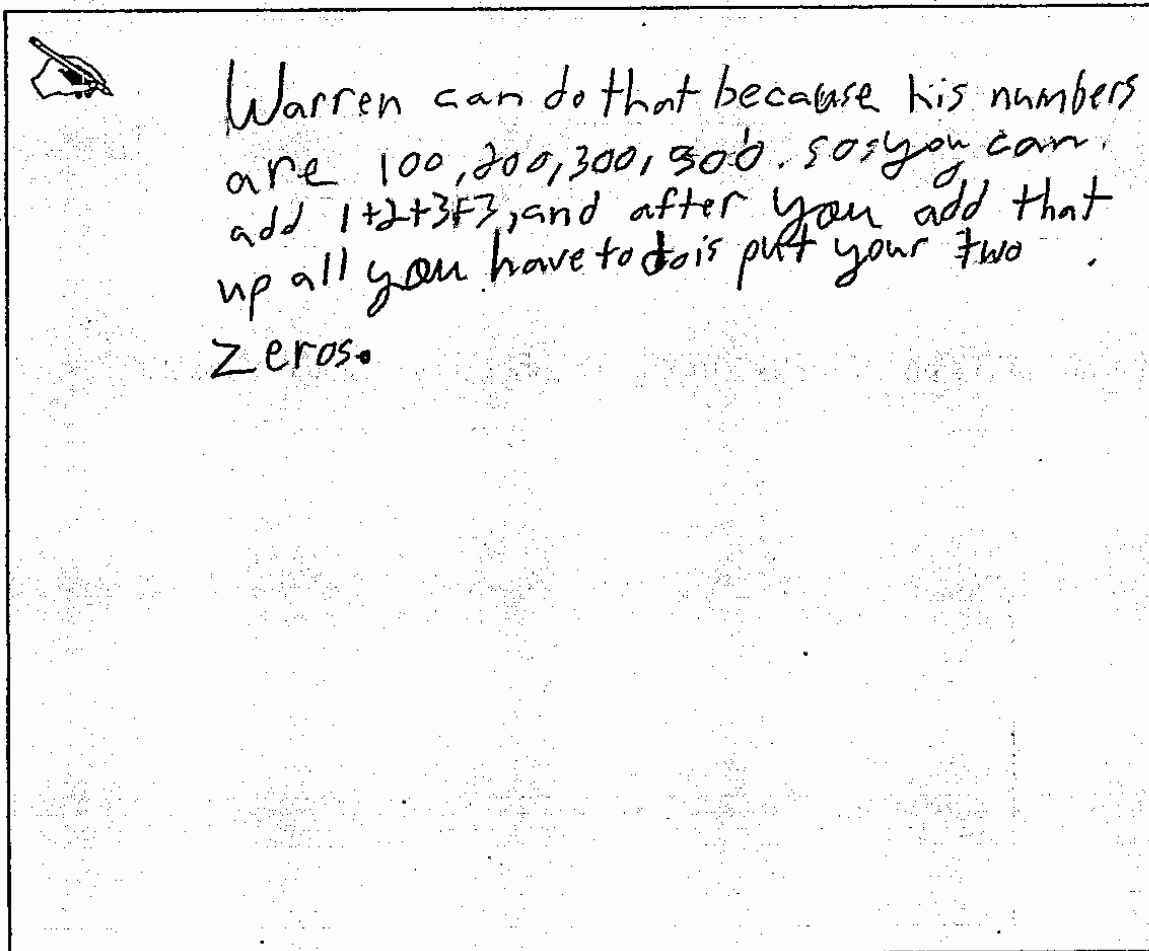 Warren can do that because his numbers
are 100, 200, 300, 300. so you can
add 1+2+3+3, and after you add that
up all you have to do is put your two
zeros.